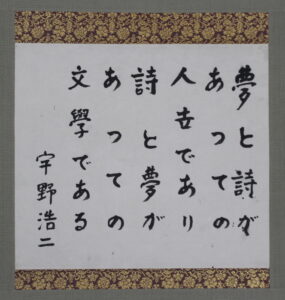 夢と詩が
あつての
人世であり
詩と夢が
あつての
文學である
宇野浩二